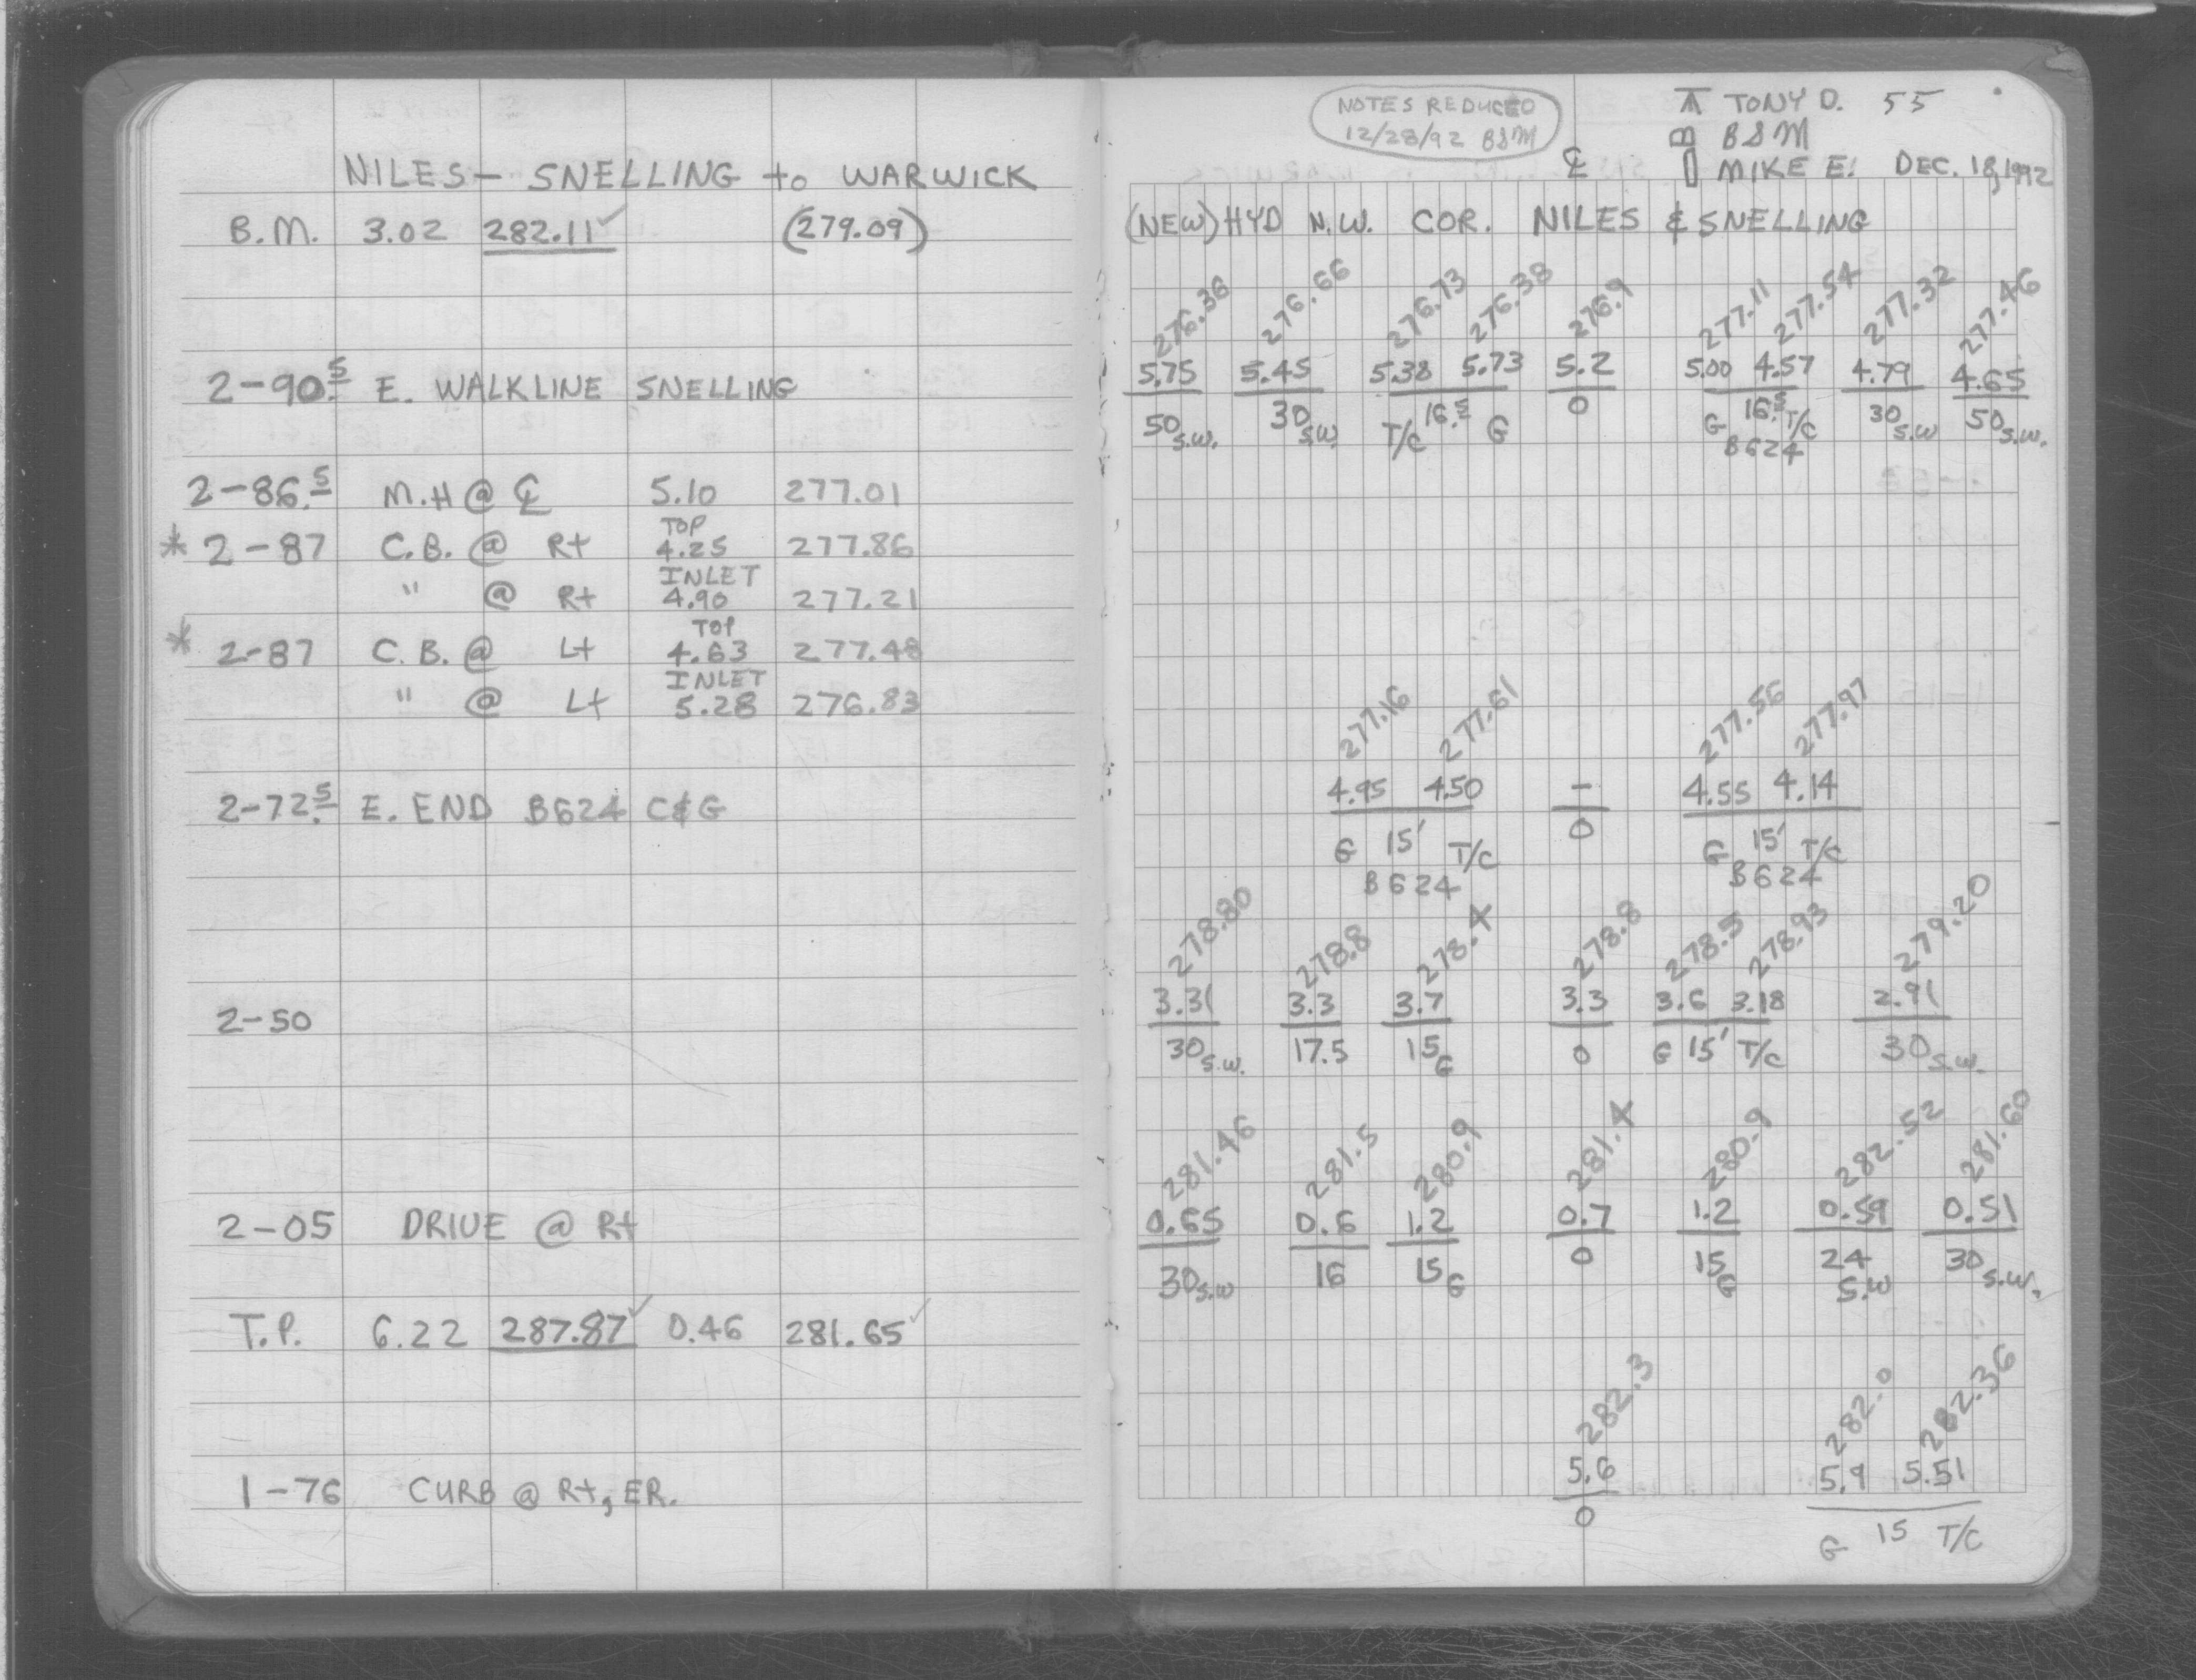 NILES - SNELLING to WARWICK
B.M. 3.02 282.11✓ (279.09)
2-90.5 E. WALKLINE SNELLING
2-86.5 M.H @ ℄ 5.10 277.01
TOP
* 2-87 C.B. @ Rt 4.25 277.86
INLET
" @ Rt 4.90 277.21
TOP
* 2-87 C.B. @ Lt 4.63 277.48
INLET
" @ Lt 5.28 276.83
2-72.5 E. END B624 C&G
2-50
2-05 DRIVE @ Rt
T.P. 6.22 287.87✓ 0.46 281.65✓
1-76 CURB @ Rt, ER.
NOTES REDUCED
12/28/92 BSM
TONY D. 55
BSM
℄ MIKE E. DEC. 18, 1992
(NEW) HYD N.W. COR. NILES & SNELLING
276.36 276.66 276.73 276.38 276.9 277.11 277.54 277.32 277.46
5.75 5.45 5.38 5.73 5.2 5.00 4.57 4.79 4.65
50 S.W. 30 S.W. T/C 16.5 G 0 G 16.5 T/C 30 S.W 50 S.W.
B624
277.16 277.61 277.56 277.97
4.95 4.50 - 4.55 4.14
G 15' T/C 0 G 15' T/C
B624 B624
278.80 278.8 278.4 278.8 278.5 278.93 279.20
3.31 3.3 3.7 3.3 3.6 3.18 2.91
30 S.W. 17.5 15 G 0 G 15' T/C 30 S.W.
281.46 281.5 280.9 281.4 280.9 282.52 281.60
0.65 0.6 1.2 0.7 1.2 0.59 0.51
30 S.W 16 15 G 0 15 G 24 S.W 30 S.W.
282.3 282.0 282.36
5.6 5.9 5.51
0 G 15 T/C